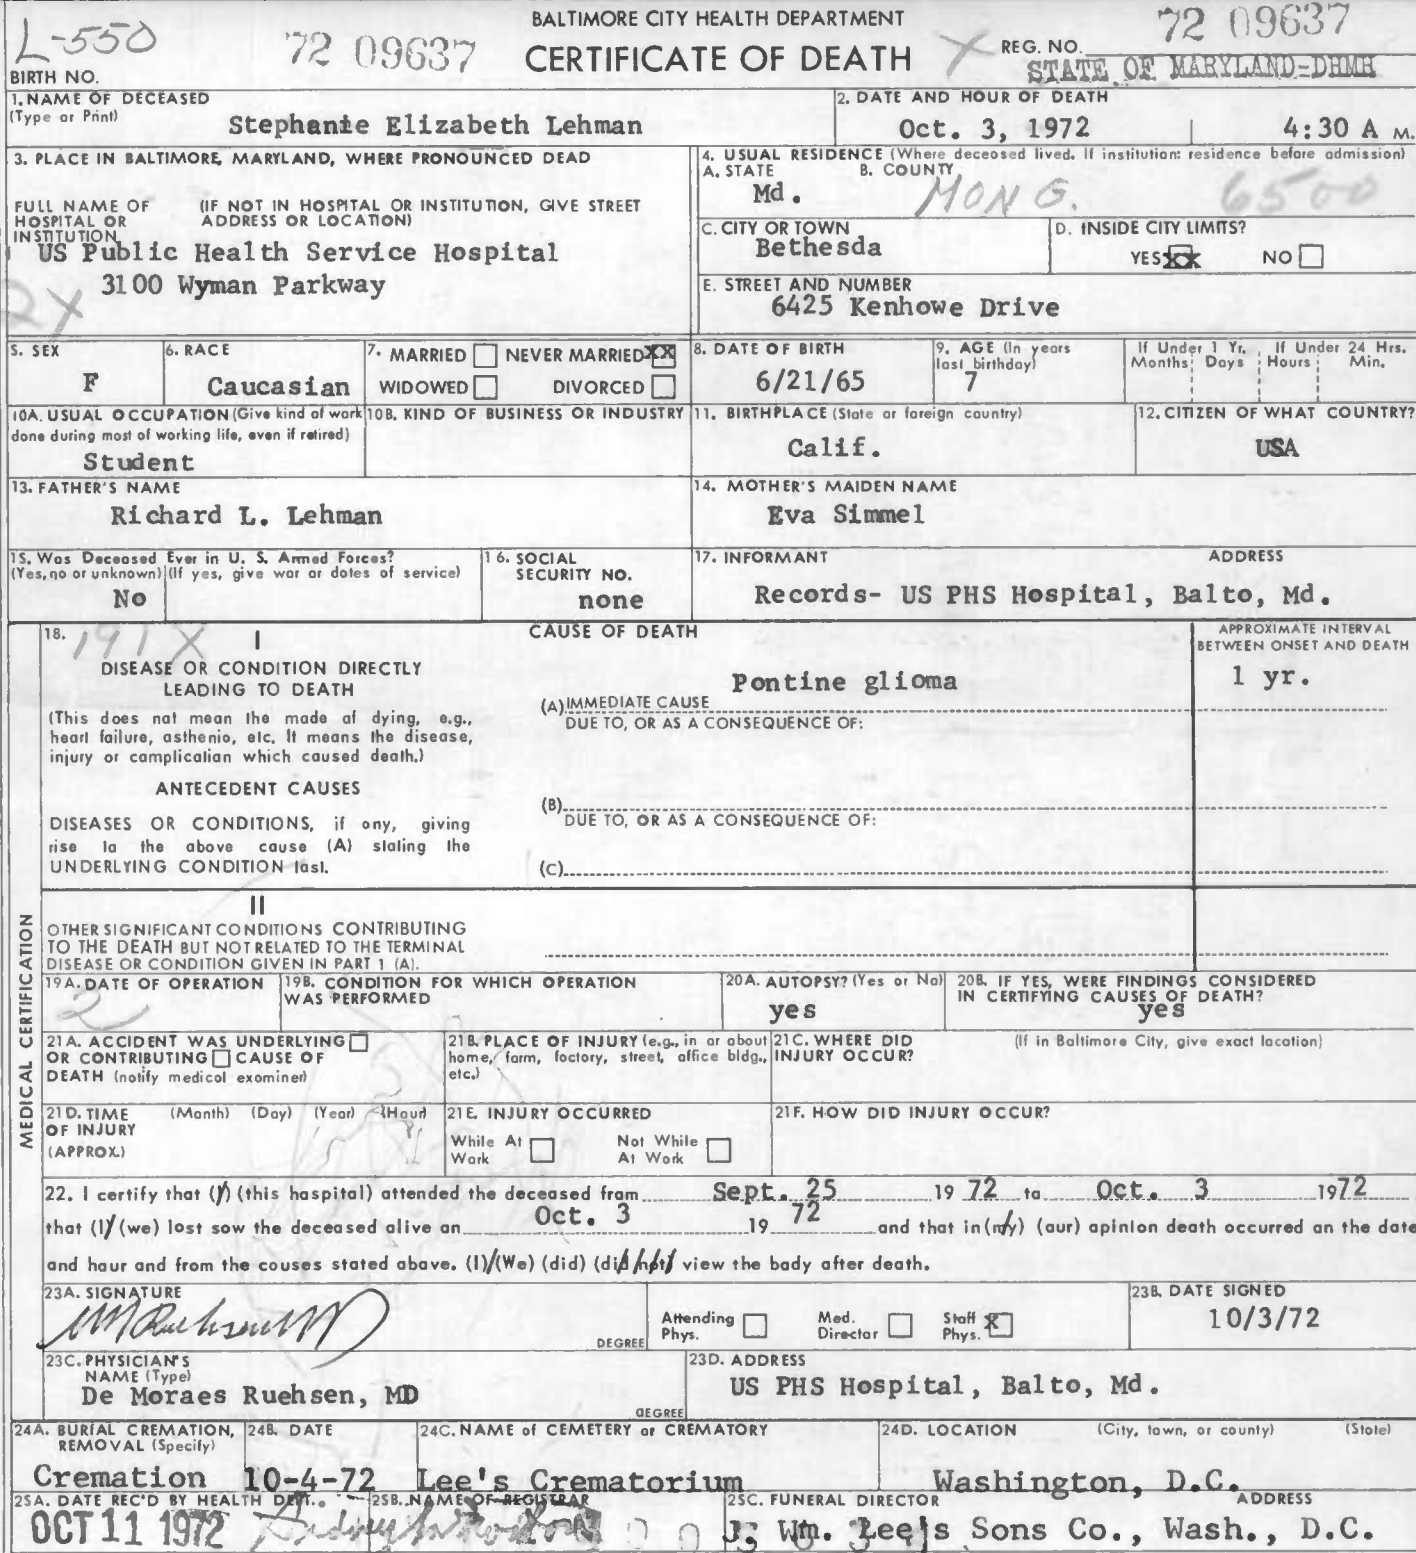 BALTIMORE CITY HEALTH DEPARTMENT
CERTIFICATE OF DEATH
L-550
72 09637
72 09637
REG. NO.
STATE OF MARYLAND-DHMH
BIRTH NO.
1. NAME OF DECEASED
(Type or Print)
Stephanie Elizabeth Lehman
2. DATE AND HOUR OF DEATH
Oct. 3, 1972 4:30 A M.
3. PLACE IN BALTIMORE, MARYLAND, WHERE PRONOUNCED DEAD
FULL NAME OF HOSPITAL OR INSTITUTION
(IF NOT IN HOSPITAL OR INSTITUTION, GIVE STREET ADDRESS OR LOCATION)
US Public Health Service Hospital
3100 Wyman Parkway
2X
4. USUAL RESIDENCE (Where deceased lived. If institution: residence before admission)
A. STATE B. COUNTY
Md. MONG. 6500
C. CITY OR TOWN
Bethesda
D. INSIDE CITY LIMITS?
YES XX NO
E. STREET AND NUMBER
6425 Kenhowe Drive
5. SEX
F
6. RACE
Caucasian
7. MARRIED NEVER MARRIED XX
WIDOWED DIVORCED
8. DATE OF BIRTH
6/21/65
9. AGE (In years last birthday)
7
If Under 1 Yr. If Under 24 Hrs.
Months Days Hours Min.
10A. USUAL OCCUPATION (Give kind of work done during most of working life, even if retired)
Student
10B. KIND OF BUSINESS OR INDUSTRY
11. BIRTHPLACE (State or foreign country)
Calif.
12. CITIZEN OF WHAT COUNTRY?
USA
13. FATHER'S NAME
Richard L. Lehman
14. MOTHER'S MAIDEN NAME
Eva Simmel
15. Was Deceased Ever in U. S. Armed Forces?
(Yes, no or unknown) (If yes, give war or dates of service)
No
16. SOCIAL SECURITY NO.
none
17. INFORMANT ADDRESS
Records- US PHS Hospital, Balto, Md.
MEDICAL CERTIFICATION
18. 191X
I
CAUSE OF DEATH
APPROXIMATE INTERVAL
BETWEEN ONSET AND DEATH
DISEASE OR CONDITION DIRECTLY
LEADING TO DEATH
(This does not mean the mode of dying, e.g.,
heart failure, asthenia, etc. It means the disease,
injury or complication which caused death.)
Pontine glioma
1 yr.
(A) IMMEDIATE CAUSE
DUE TO, OR AS A CONSEQUENCE OF:
ANTECEDENT CAUSES
DISEASES OR CONDITIONS, if any, giving
rise to the above cause (A) stating the
UNDERLYING CONDITION last.
(B)
DUE TO, OR AS A CONSEQUENCE OF:
(C)
II
OTHER SIGNIFICANT CONDITIONS CONTRIBUTING
TO THE DEATH BUT NOT RELATED TO THE TERMINAL
DISEASE OR CONDITION GIVEN IN PART 1 (A).
19A. DATE OF OPERATION
2
19B. CONDITION FOR WHICH OPERATION
WAS PERFORMED
20A. AUTOPSY? (Yes or No)
yes
20B. IF YES, WERE FINDINGS CONSIDERED
IN CERTIFYING CAUSES OF DEATH?
yes
21A. ACCIDENT WAS UNDERLYING
OR CONTRIBUTING CAUSE OF
DEATH (notify medical examiner)
21B. PLACE OF INJURY (e.g., in or about
home, farm, factory, street, office bldg.,
etc.)
21C. WHERE DID
INJURY OCCUR?
(If in Baltimore City, give exact location)
21D. TIME (Month) (Day) (Year) (Hour)
OF INJURY
(APPROX.)
21E. INJURY OCCURRED
While At Work Not While At Work
21F. HOW DID INJURY OCCUR?
22. I certify that (I) (this hospital) attended the deceased from Sept. 25 19 72 to Oct. 3 1972
that (I) (we) last saw the deceased alive on Oct. 3 19 72 and that in (my) (our) opinion death occurred on the date
and hour and from the causes stated above. (I) (We) (did) (did not) view the body after death.
23A. SIGNATURE
DEGREE
Attending Phys. Med. Director Staff Phys. X
23B. DATE SIGNED
10/3/72
23C. PHYSICIAN'S
NAME (Type)
De Moraes Ruehsen, MD
DEGREE
23D. ADDRESS
US PHS Hospital, Balto, Md.
24A. BURIAL CREMATION,
REMOVAL (Specify)
Cremation
24B. DATE
10-4-72
24C. NAME of CEMETERY or CREMATORY
Lee's Crematorium
24D. LOCATION (City, town, or county) (State)
Washington, D.C.
25A. DATE REC'D BY HEALTH DEPT.
OCT 11 1972
25B. NAME OF REGISTRAR
25C. FUNERAL DIRECTOR ADDRESS
J. Wm. Lee's Sons Co., Wash., D.C.